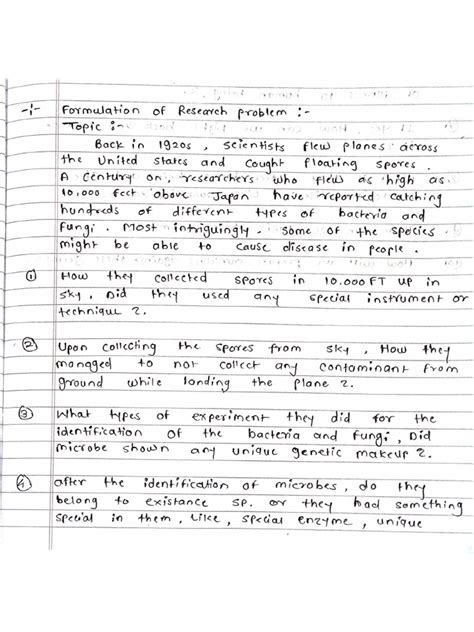 -1- Formulation of Research problem :-
Topic :-
Back in 1920s, scientists flew planes across
the United States and cought floating spores.
A Century on, researchers who flew as high as
10,000 feet above Japan have reported catching
hundreds of different types of bacteria and
Fungi. Most intriguingly. some of the species
might be able to cause disease in people.
① How they collected spores in 10,000FT up in
sky, Did they used any special instrument or
technique ?.
② Upon collecting the spores from sky, How they
managed to not collect any contaminant from
ground while landing the plane ?.
③ What types of experiment they did for the
identification of the bacteria and Fungi, Did
microbe shown any unique genetic makeup ?.
④ after the identification of microbes, do they
belong to existance sp. or they had something
special in them, Like, special enzyme, unique